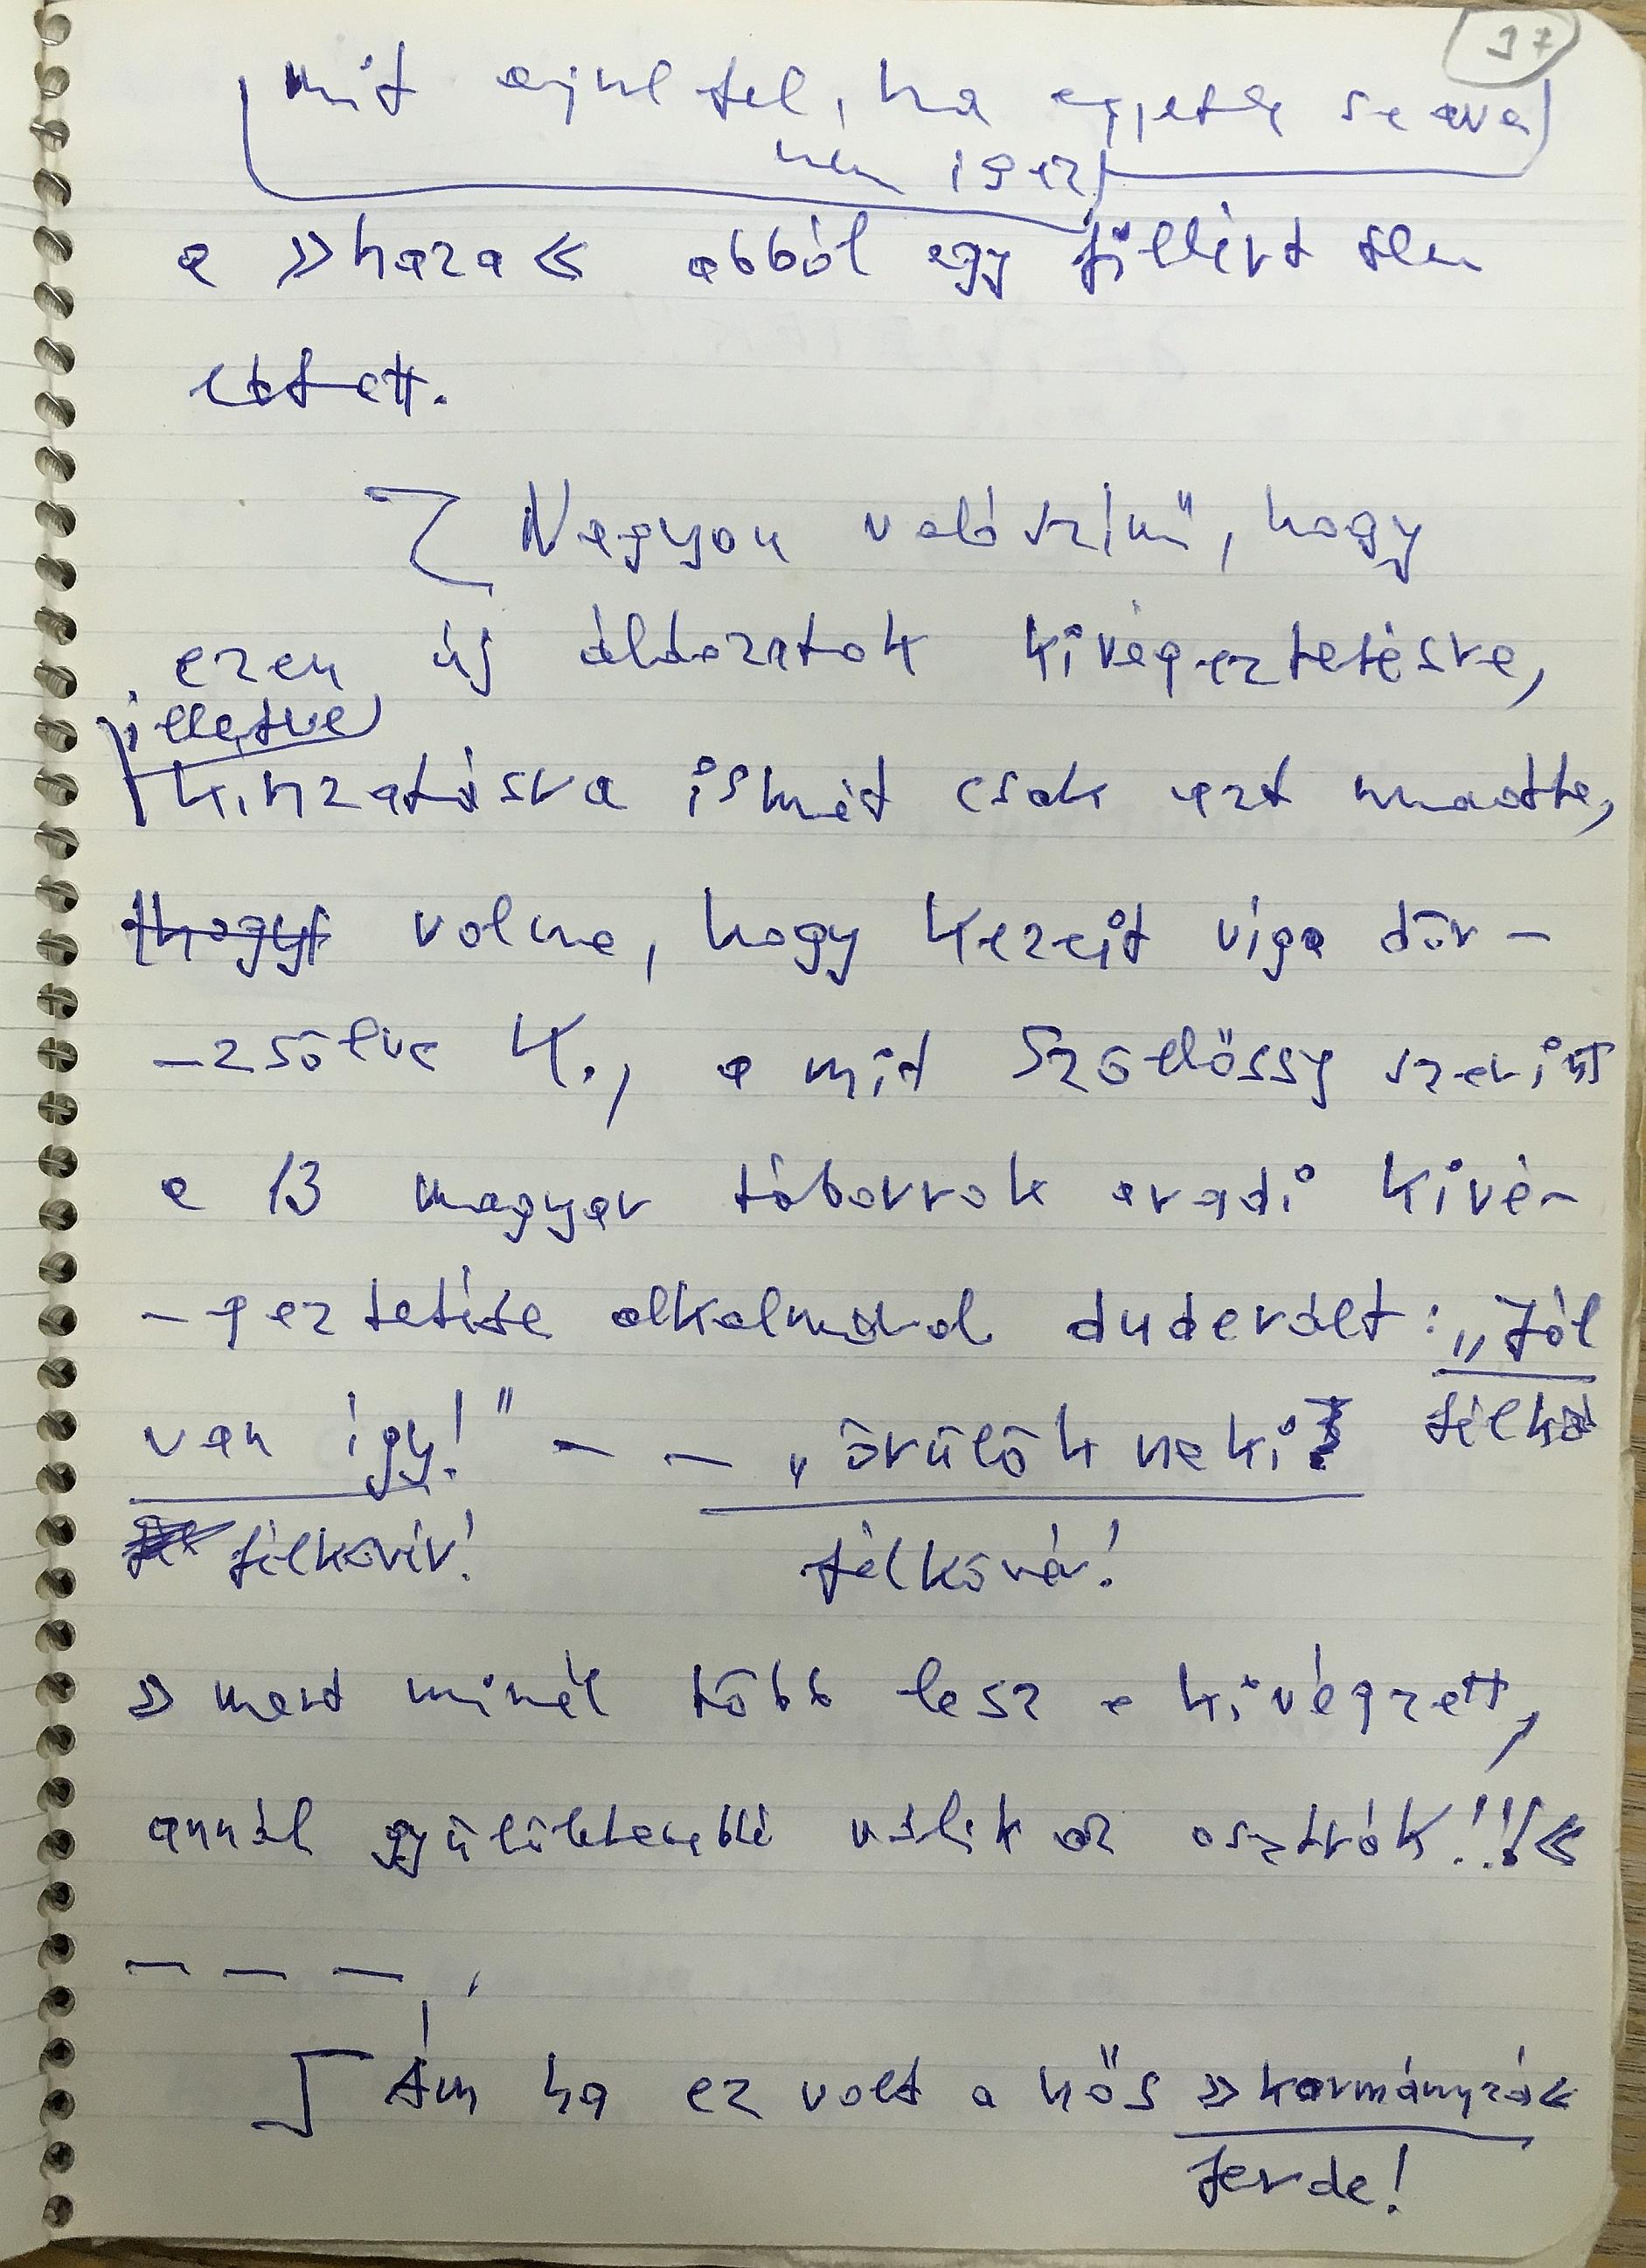 37
mit ajul fel, ha egyetlen szava
nem igaz
a »haza« abból egy fillért sem
látott.
Nagyon valószínű, hogy
ezen új áldozatok kivégeztetésre,
illetve
kínzatásra ismét csak azt mondta,
volna, hogy kezeit víga dör-
-zsölve K., a mit Szöllőssy szerint
a 13 magyar táborrok aradi kivé-
-geztetése alkalmával duderált: „Jól
félkö
van így!" - - „örülök neki
félkövér! félkövér!
» mert minél több lesz a kivégzett,
annál gyűlöletesebbé válik az osztrák!!!«
— — — .
Ám ha ez volt a hős »kormányzó«
ferde!